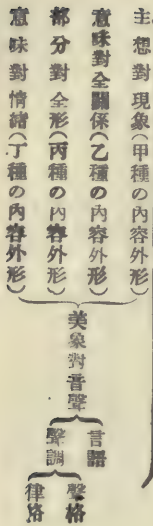 主想對現象(甲種の內容外形)
意味對全關係(乙種の內容外形)
部分對全形(丙種の內容外形)
意味對情緖(丁種の內容外形)
美象對音聲
言語
聲調
聲格
律格